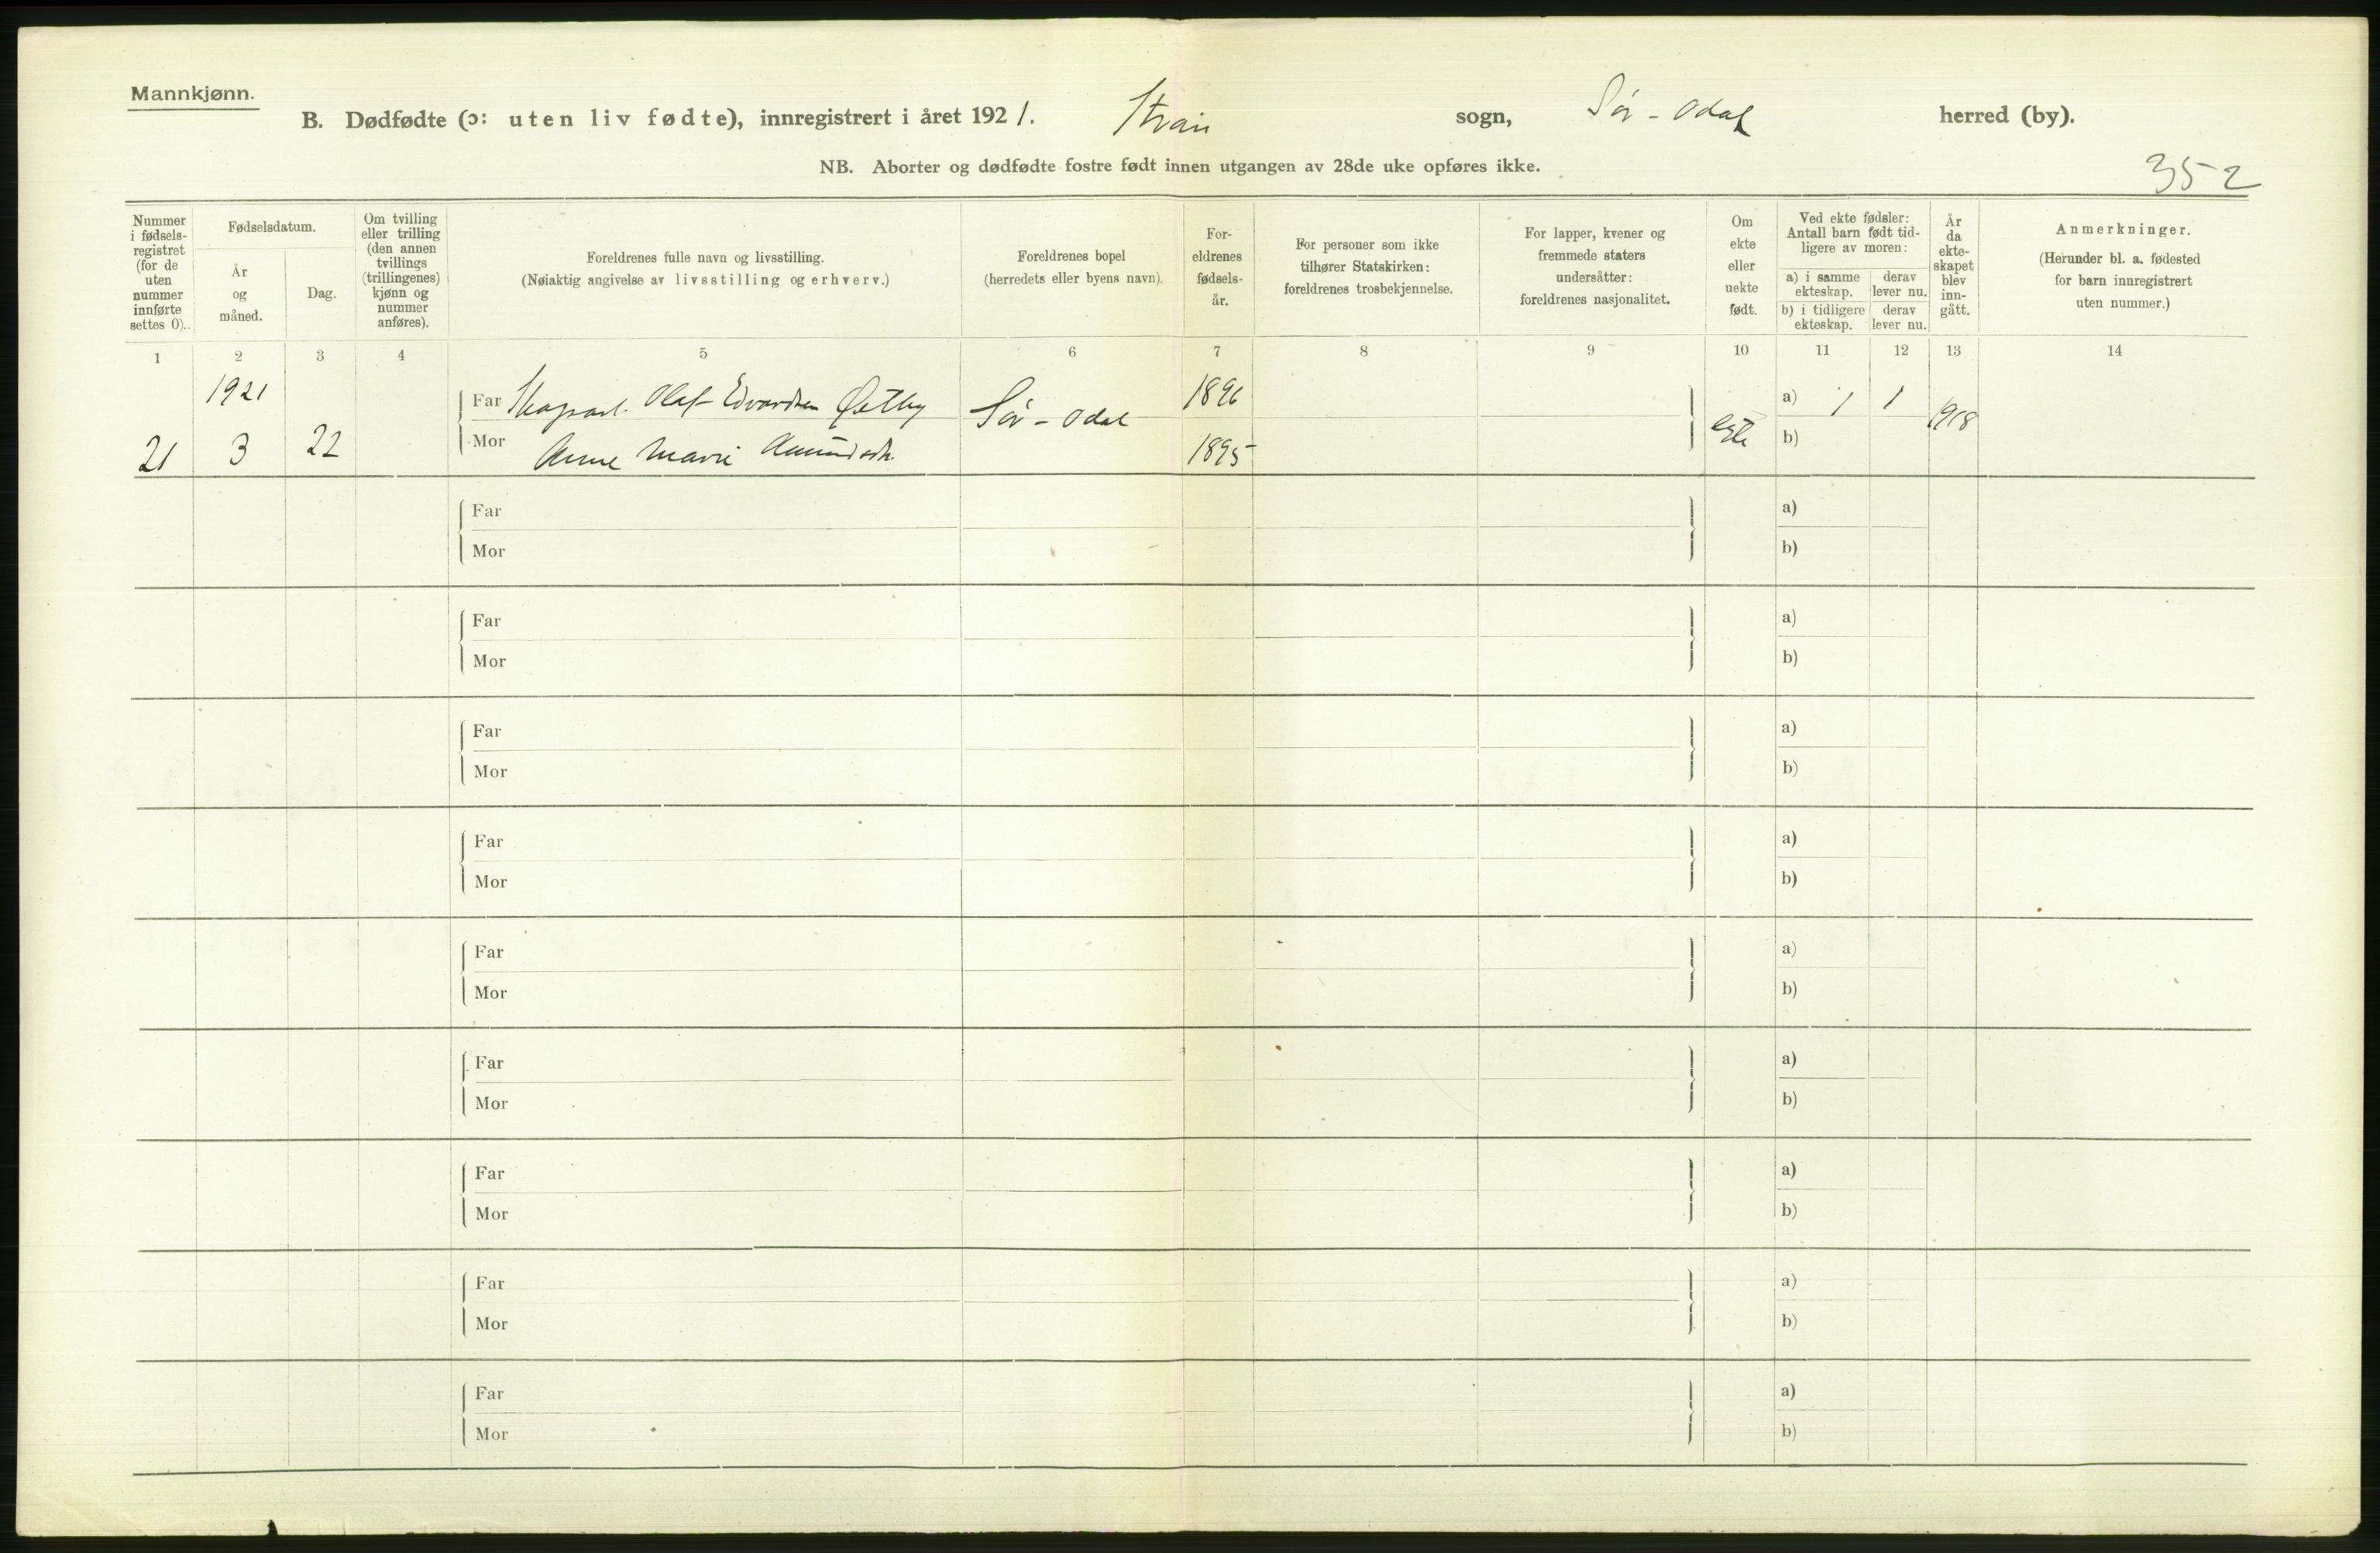 Mannkjønn.
B. Dødfødte (ɔ: uten liv fødte), innregistrert i året 1921. Strøm sogn, Sør-Odal herred (by).
NB. Aborter og dødfødte fostre født innen utgangen av 28de uke opføres ikke.
352
Nummer i fødsels-registret (for de uten nummer innførte settes 0).
Fødselsdatum.
År og måned.
Dag.
Om tvilling eller trilling (den annen tvillings (trillingenes) kjønn og nummer anføres).
Foreldrenes fulle navn og livsstilling.
(Nøiaktig angivelse av livsstilling og erhverv.)
Foreldrenes bopel
(herredets eller byens navn).
For-eldrenes fødsels-år.
For personer som ikke
tilhører Statskirken:
foreldrenes trosbekjennelse.
For lapper, kvener og
fremmede staters
undersåtter:
foreldrenes nasjonalitet.
Om ekte eller uekte født.
Ved ekte fødsler:
Antall barn født tid-
ligere av moren:
a) i samme ekteskap.
derav lever nu.
b) i tidligere ekteskap.
derav lever nu.
År da ekte-skapet blev inn-gått.
Anmerkninger.
(Herunder bl. a. fødested
for barn innregistrert
uten nummer.)
1 2 3 4 5 6 7 8 9 10 11 12 13 14
1921 Far Skogsarb. Olaf Edvardsen Østby Sør-Odal 1896 a) 1 1 1918
21 3 22 Mor Anne Marie Amundsdtr. 1895 ekte b)
Far a)
Mor b)
Far a)
Mor b)
Far a)
Mor b)
Far a)
Mor b)
Far a)
Mor b)
Far a)
Mor b)
Far a)
Mor b)
Far a)
Mor b)
Far a)
Mor b)